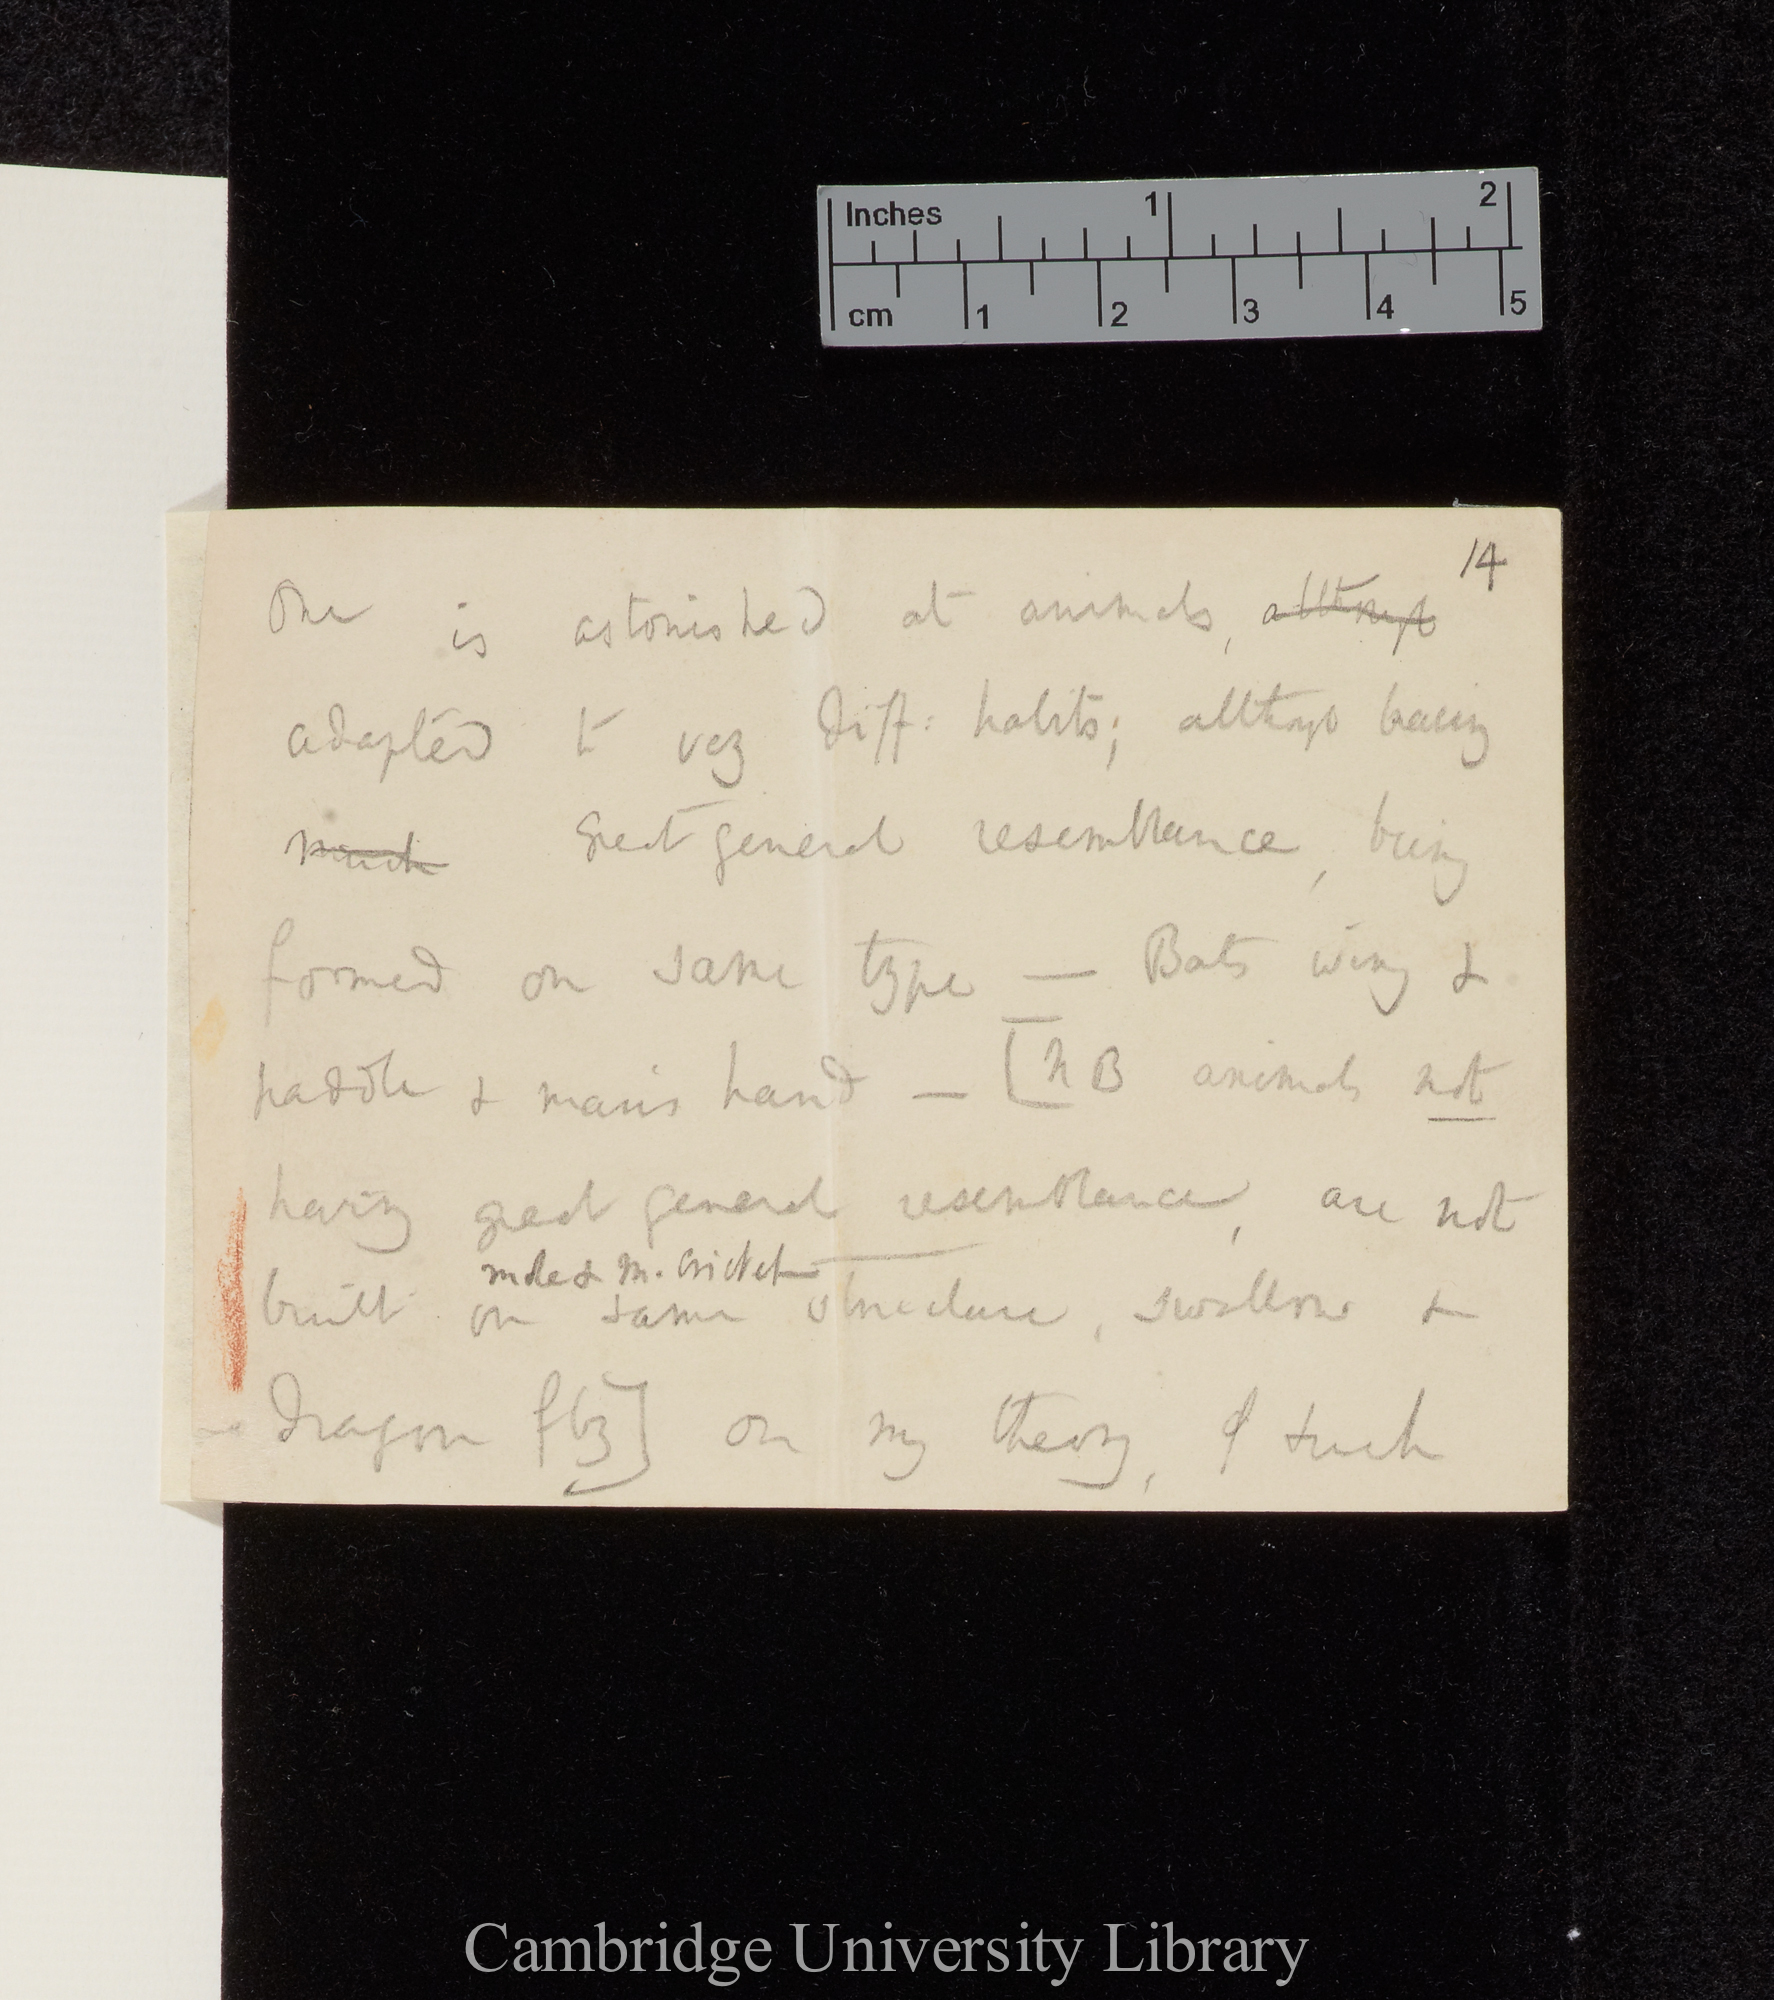 Inches 1 2
cm 1 2 3 4 5
14
One is astonished at animals, although
adapted to very diff: habits; although having
much great general resemblance, being
formed on same type — Bats wing &
paddle & man's hand — [NB animals not
having great general resemblance, are not
mole & M. Cricket
built on same structure, swallow &
dragon fly] on my theory, if such
Cambridge University Library